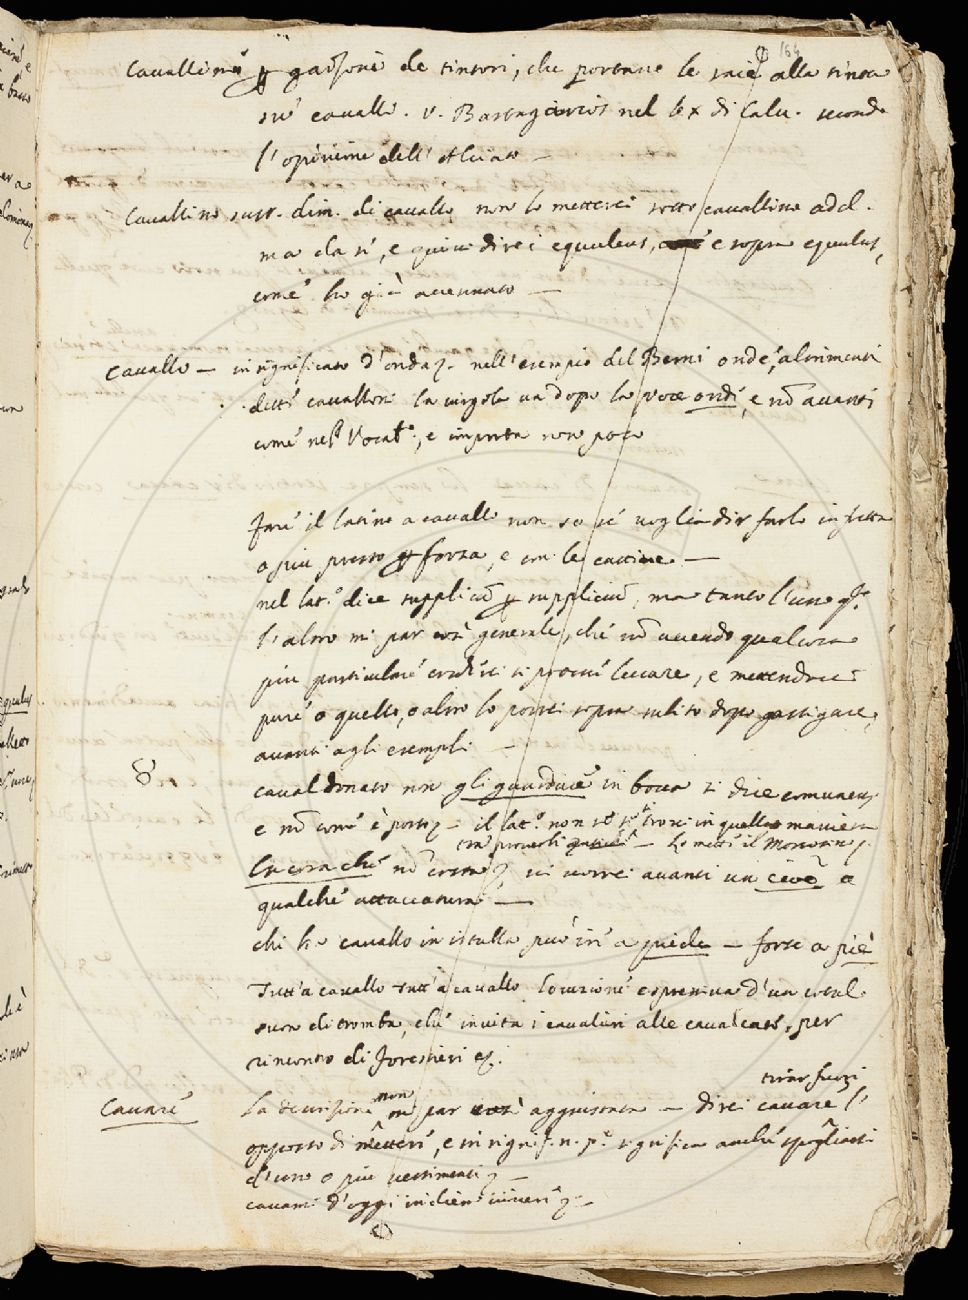 164
Cavallino p garzone de tintori, che portano le saie alla tinta
sù cavalli. v. nel lex di Calv. secondo
l'opinione dell'Alciato —
Cavallino sust. dim. di cavallo non lo metterei sotto cavallino add.
ma da sé, e quivi direi equuleus, e sopra equulus,
come ho già accennato —
Cavallo — in significato d'onda nell'esempio del Berni onde, altrimenti
detti cavalloni la virgola va dopo la voce ondi, e nõ avanti
come nel Vocab.º, e importa non poco
Fare il latino a cavallo non so se voglia dir farlo in fretta
o più presto p forza, e con le cattive —
nel lat.º dice p suppliciũ, ma tanto l'uno q.to
l'altro mi par così generale, che nõ avendo qualcosa
più particolare si può lasciare, e
pure o quello, o altro lo porrei sopra subito dopo gastigare,
avanti agli esempli —
caval donato non gli guardare in bocca si dice comunem.
e nõ come è posto — il lat.º non se si trovi in quella maniera
tra proverbi — lo metti il Monosini
Ancora che nõ ci vorrei avanti un cioè o
qualche attaccatura —
chi ha cavallo in istalla può ir' a piede — forse a piè
Tutt'a cavallo tutt'a cavallo locuzione espressiva d'un cotal
suon di tromba, che invita i cavalieri alle cavalcate, per
rincontro di forestieri
tirar fuori
Cavare la decisione non mi par così aggiustata — direi cavare l'
opposto di mettere, e in signif. n. p. significa anche spogliarsi
d'uno o più vestimenti —
cavami d'oggi —